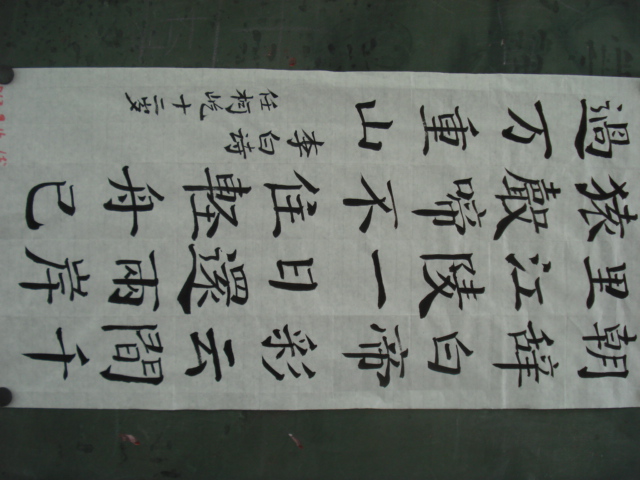 朝辞白帝彩云間千
里江陵一日還兩岸
猿嚴啼不住輕舟已
過万重山
李白詩
任柯屹十二岁